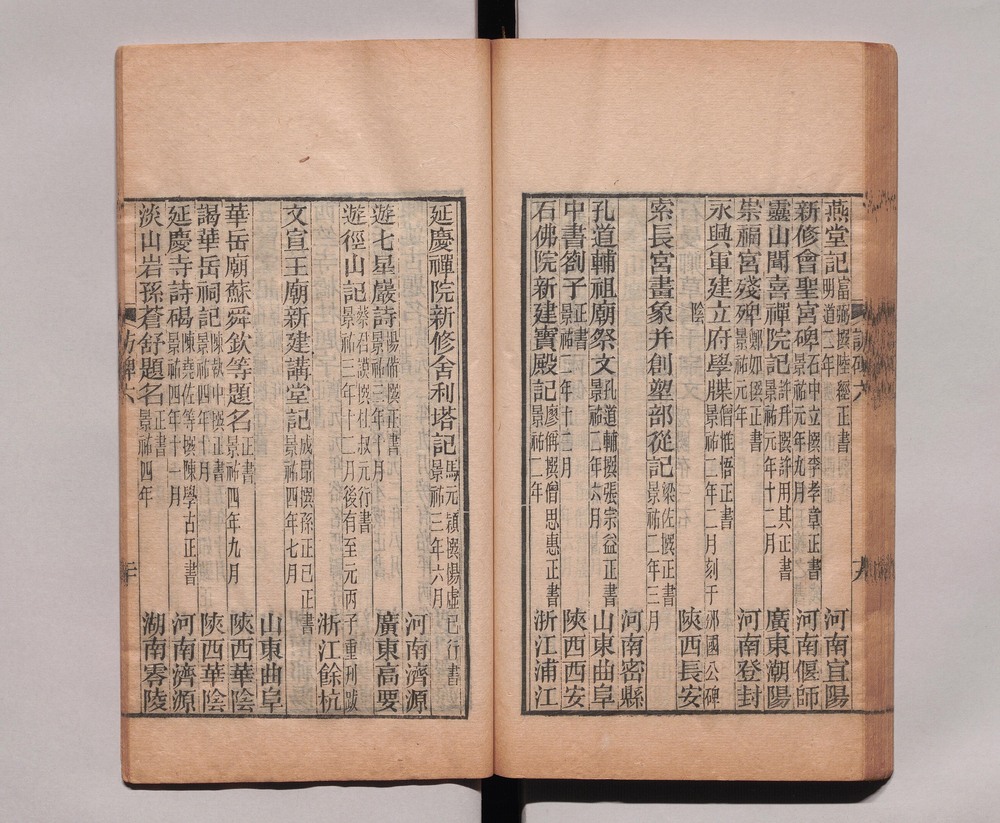 燕堂記富弼撰陸經正書明道二年 河南宜陽
新修會聖宮碑石中立撰李孝章正書景祐元年九月 河南偃師
靈山聞喜禪院記許升撰許用其正書景祐元年十二月 廣東潮陽
崇福宮殘碑鄭如撰正書景祐元年 河南登封
永興軍建立府學牒僧惟悟正書景祐二年二月刻于邠國公碑
陰 陝西長安
索長宮畫象并創塑部從記梁佐撰正書景祐二年三月
河南密縣
孔道輔祖廟祭文孔道輔撰張宗益正書景祐二年六月 山東曲阜
中書劄子正書景祐二年十二月 陝西西安
石佛院新建寶殿記廖偁撰僧思惠正書景祐二年 浙江浦江
訪碑六
九
延慶禪院新修舍利塔記馬元穎撰陽虛已行書景祐三年六月
河南濟源
遊七星巖詩陽備撰正書景祐三年十月 廣東高要
遊徑山記蔡君謨撰杜叔元行書景祐三年十二月後有至元丙子重刊跋
浙江餘杭
文宣王廟新建講堂記成昂撰孫正己正書景祐四年七月
山東曲阜
華岳廟蘇舜欽等題名正書景祐四年九月 陝西華陰
謁華岳祠記陳執中撰正書景祐四年十月 陝西華陰
延慶寺詩碣陳堯佐等撰陳學古正書景祐四年十一月 河南濟源
淡山岩孫蒼舒題名正書景祐四年 湖南零陵
訪碑六